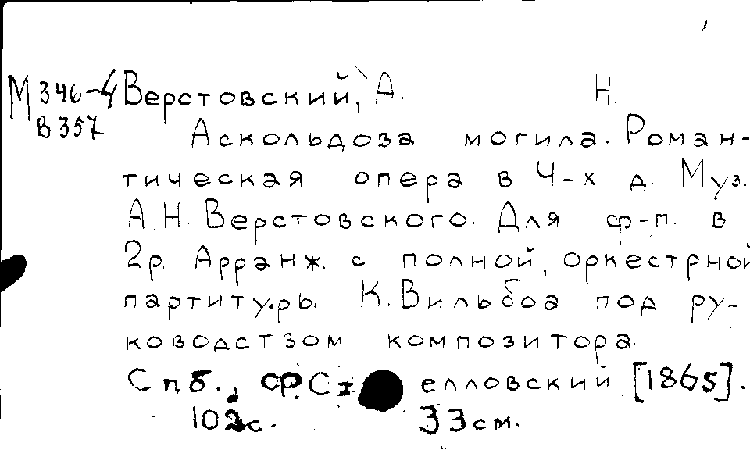 М 346-4 Верстовский, А. Н.
В 357
Аскольдова могила. Роман-
тическая опера в 4-х д. Муз.
А. Н. Верстовского. Для ф-п. в
2р. Арранж. с полной, оркестрной
партитуры К. Вильбоа под ру-
ководством композитора.
Спб., Ф. елловский [1865].
102с. 33см.